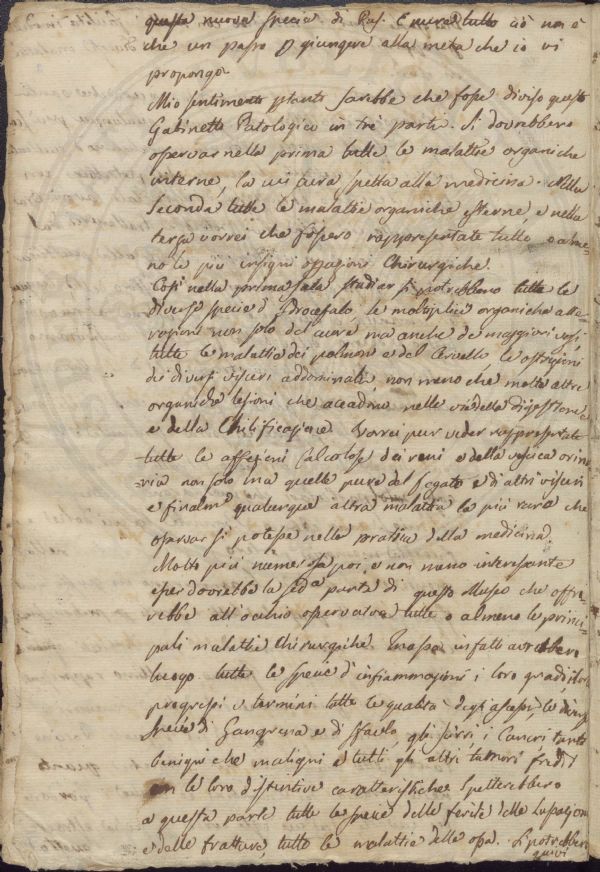 questa nuova specie di Pat. E pure tutto ciò non è
che un passo p giungere alla meta che io vi
propongo.
Mio sentimento ptanto sarebbe che fosse diviso questo
Gabinetto Patologico in tre parti. Si dovrebbero
osservar nella prima tutte le malattie organiche
interne, la cui cura spetta alla medicina. Nella
seconda tutte le malattie organiche esterne, e nella
terza vorrei che fossero rappresentate tutte o alme-
no le più insigni opazioni Chirurgiche.
Così nella prima sala studiar si potrebbero tutte le
diverse specie d'Idrocefalo, le moltiplici organiche alte-
razioni non solo del cuore ma anche de maggiori vasi
tutte le malattie dei polmoni e del Cervello le ostruzioni
dei diversi visceri addominali, non meno che molte altre
organiche lesioni che accadono nelle vie della digestione
e della Chilificazione. Vorrei pur veder rappresentate
tutte le affezioni Calcolose dei reni e della vescica orina-
ria non solo ma quelle pure del fegato e di altri visceri
e finalme qualunque altra malattia la più rara che
osservar si potesse nella pratica della medicina.
Molto più numerosa poi e non meno interessante
esser dovrebbe la seda parte di questo Museo che offri-
rebbe all'occhio osservatore tutte o almeno le princi-
pali malattie Chirurgiche. In essa infatti avrebbero
luogo tutte le specie d'infiammazioni i loro gradi, i loro
progressi e termini tutte le qualità degli ascessi, le diverse
specie di Gangrena e di sfacelo, gli scirri, i Cancri tanto
benigni che maligni e tutti gli altri tumori freddi
con le loro distintive caratteristiche. Spetterebbero
a questa parte tutte le specie delle ferite delle lussazioni
e delle fratture, tutte le malattie delle ossa. Si potrebbero
quivi